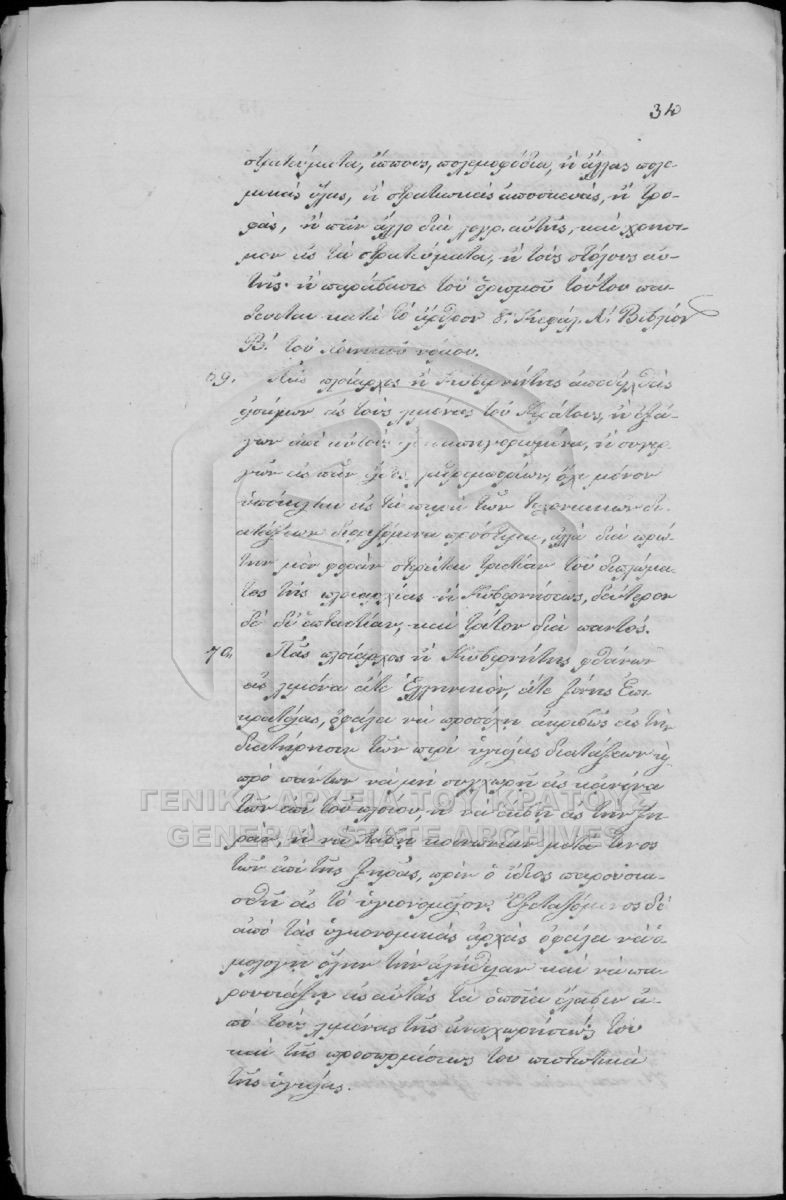 34
στρατεύματα, ἵππους, πολεμοφόδια, ἢ ἄλλας πολε-
μικὰς ὕλας, ἢ στρατιωτικὰς ἀποσκευάς, ἢ τρο-
φάς, ἢ πᾶν ἄλλο διὰ λογαρ. αὐτῆς, καὶ χρησι-
μον εἰς τὰ στρατεύματα, ἢ τοὺς στόλους αὐ-
τῆς· ἡ παράβασις τοῦ ὁρισμοῦ τούτου παι-
δεύεται κατὰ τὸ ἄρθρον δ. Κεφάλ. Α! Βιβλίον
Β! τοῦ ποινικοῦ νόμου.
69. πλοίαρχος ἢ Κυβερνήτης ἀποδειχθεὶς
εἰς τοὺς λιμένας τοῦ Κράτους, ἢ ἐξά-
γων ἀπὸ αὐτοὺς ἢ συνερ-
γῶν εἰς πᾶν εἶδος λαθρεμπορίων, ὄχι μόνον
ὑπόκειται εἰς τὰ περὶ τῶν τελωνειακῶν δι-
ατάξεων διοριζόμενα πρόστιμα, ἀλλὰ διὰ πρώ-
την μὲν φορὰν στερεῖται τριετίαν τοῦ διπλώμα-
τος τῆς πλοιαρχίας ἢ Κυβερνήσεως, δεύτερον
δὲ δι' ἑπταετίαν, καὶ τρίτον διὰ παντός.
70. Πᾶς πλοίαρχος ἢ Κυβερνήτης φθάνων
εἰς λιμένα εἴτε Ἑλληνικὸν, εἴτε ξένης Ἐπι-
κρατείας, ὀφείλει νὰ προσέχῃ ἀκριβῶς εἰς τὴν
διατήρησιν τῶν περὶ ὑγείας διατάξεων κ
πρὸ πάντων νὰ μὴ συγχωρῇ εἰς κανένα
τῶν ἐπὶ τοῦ πλοίου, ἢ νὰ ἐκβῇ εἰς τὴν ξη-
ράν, ἢ νὰ λάβῃ κοινωνίαν μετά τινος
τῶν ἀπὸ τῆς ξηρᾶς, πρὶν ὁ ἴδιος παρουσια-
σθῇ εἰς τὸ ὑγειονομεῖον. Ἐξεταζόμενος δὲ
ἀπὸ τὰς ὑγειονομικὰς ἀρχὰς ὀφείλει νὰ ὁ-
μολογῇ ὅλην τὴν ἀλήθειαν καὶ νὰ πα-
ρουσιάζῃ εἰς αὐτὰς τὰ ὁποῖα ἔλαβεν ἀ-
πὸ τοὺς λιμένας τῆς ἀναχωρήσεώς του
καὶ τῆς προσορμίσεως του πιστωτικὰ
τῆς ὑγείας.
ΓΕΝΙΚΑ ΑΡΧΕΙΑ ΤΟΥ ΚΡΑΤΟΥΣ
GENERAL STATE ARCHIVES